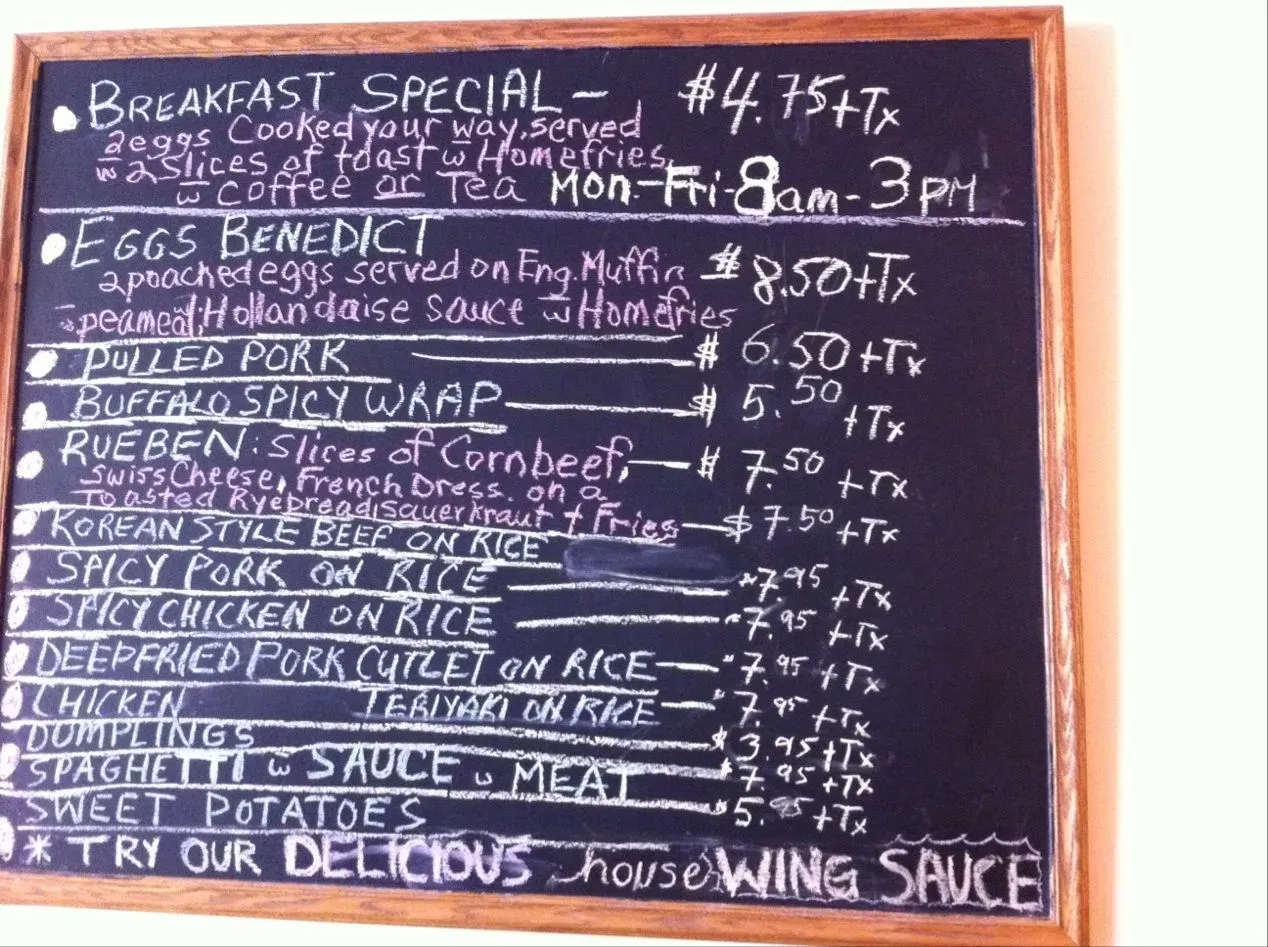 BREAKFAST SPECIAL – $4.75+Tx
2eggs Cooked your way, served
w̄ 2 Slices of toast w̄ Homefries,
w̄ coffee or Tea Mon-Fri-8am-3PM
EGGS BENEDICT
2 poached eggs served on Eng. Muffin $8.50+Tx
peameal, Hollandaise sauce w̄ Homefries
PULLED PORK $6.50+Tx
BUFFALO SPICY WRAP $5.50+Tx
RUEBEN: Slices of Cornbeef, $7.50+Tx
Swiss Cheese, French Dress. on a
Toasted Ryebread, Sauerkraut + Fries $7.50+Tx
KOREAN STYLE BEEF ON RICE
SPICY PORK ON RICE 7.95+Tx
SPICY CHICKEN ON RICE 7.95+Tx
DEEPFRIED PORK CUTLET ON RICE 7.95+Tx
CHICKEN TERIYAKI ON RICE 7.95+Tx
DUMPLINGS $3.95+Tx
SPAGHETTI w̄ SAUCE w̄ MEAT 7.95+Tx
SWEET POTATOES 5. +Tx
* TRY OUR DELICIOUS house WING SAUCE